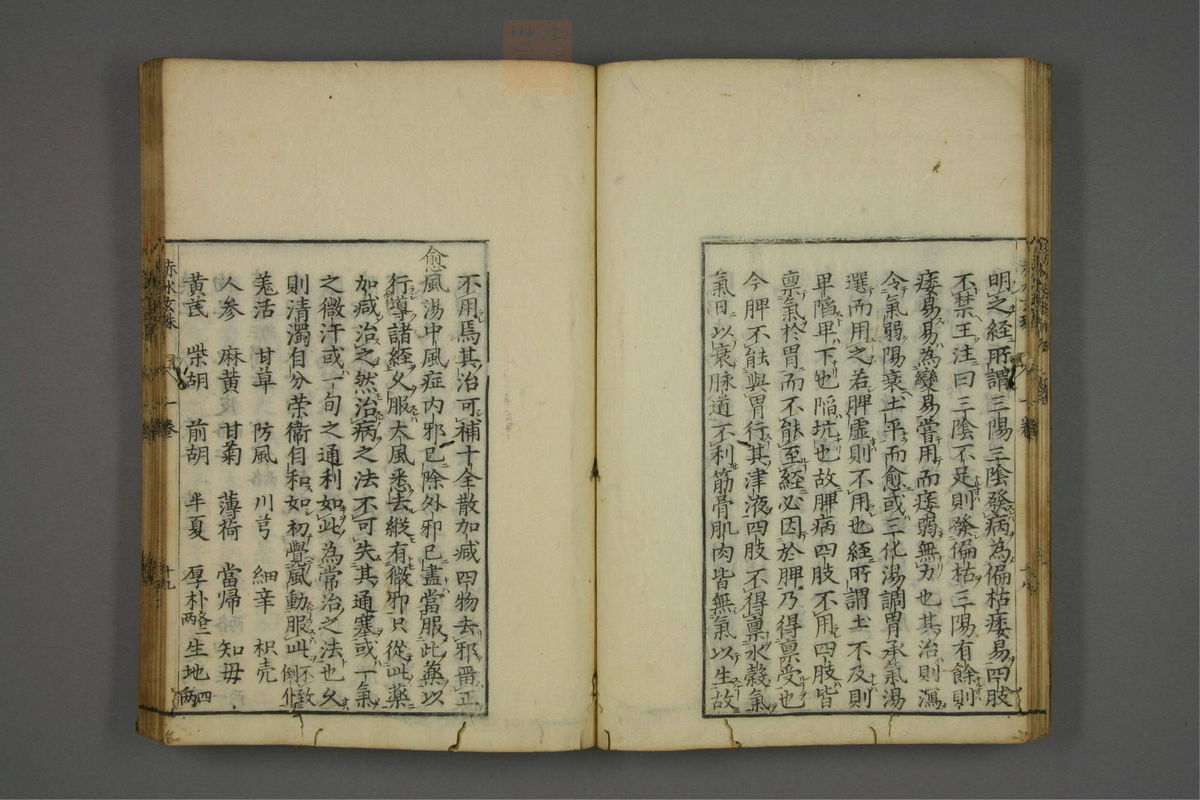 明之経所謂三陽三陰發病為偏枯痿易四肢
不禁王注曰三陰不足則發偏枯三陽有餘則
痿易易為變易嘗用而痿弱無力也其治則瀉
令氣弱陽衰土平而愈或三化湯調胃承氣湯
選而用之若脾虚則不用也経所謂土不及則
卑陷卑下也陷坑也故脾病四肢不用四肢皆
禀氣於胃而不能至経必因於脾乃得禀受也
今脾不能與胃行其津液四肢不得禀水穀氣
氣日以衰脉道不利筋骨肌肉皆無氣以生故
不用焉其治可補十全散加减四物去邪畱正
愈風湯中風症内邪已除外邪已盡當服此藥以
行導諸経久服大風悉去縱有微邪只從此藥
加减治之然治病之法不可失其通塞或一氣
之微汗或一旬之通利如此為常治之法也久
則清濁自分荣衞自和如初覺風動服此不致倒仆
羗活 甘草 防風 川芎 細辛 枳壳
人参 麻黄 甘菊 薄荷 當帰 知毋
黄芪 柴胡 前胡 半夏 厚朴各二两 生地四两
赤水玄珠 一巻 十九